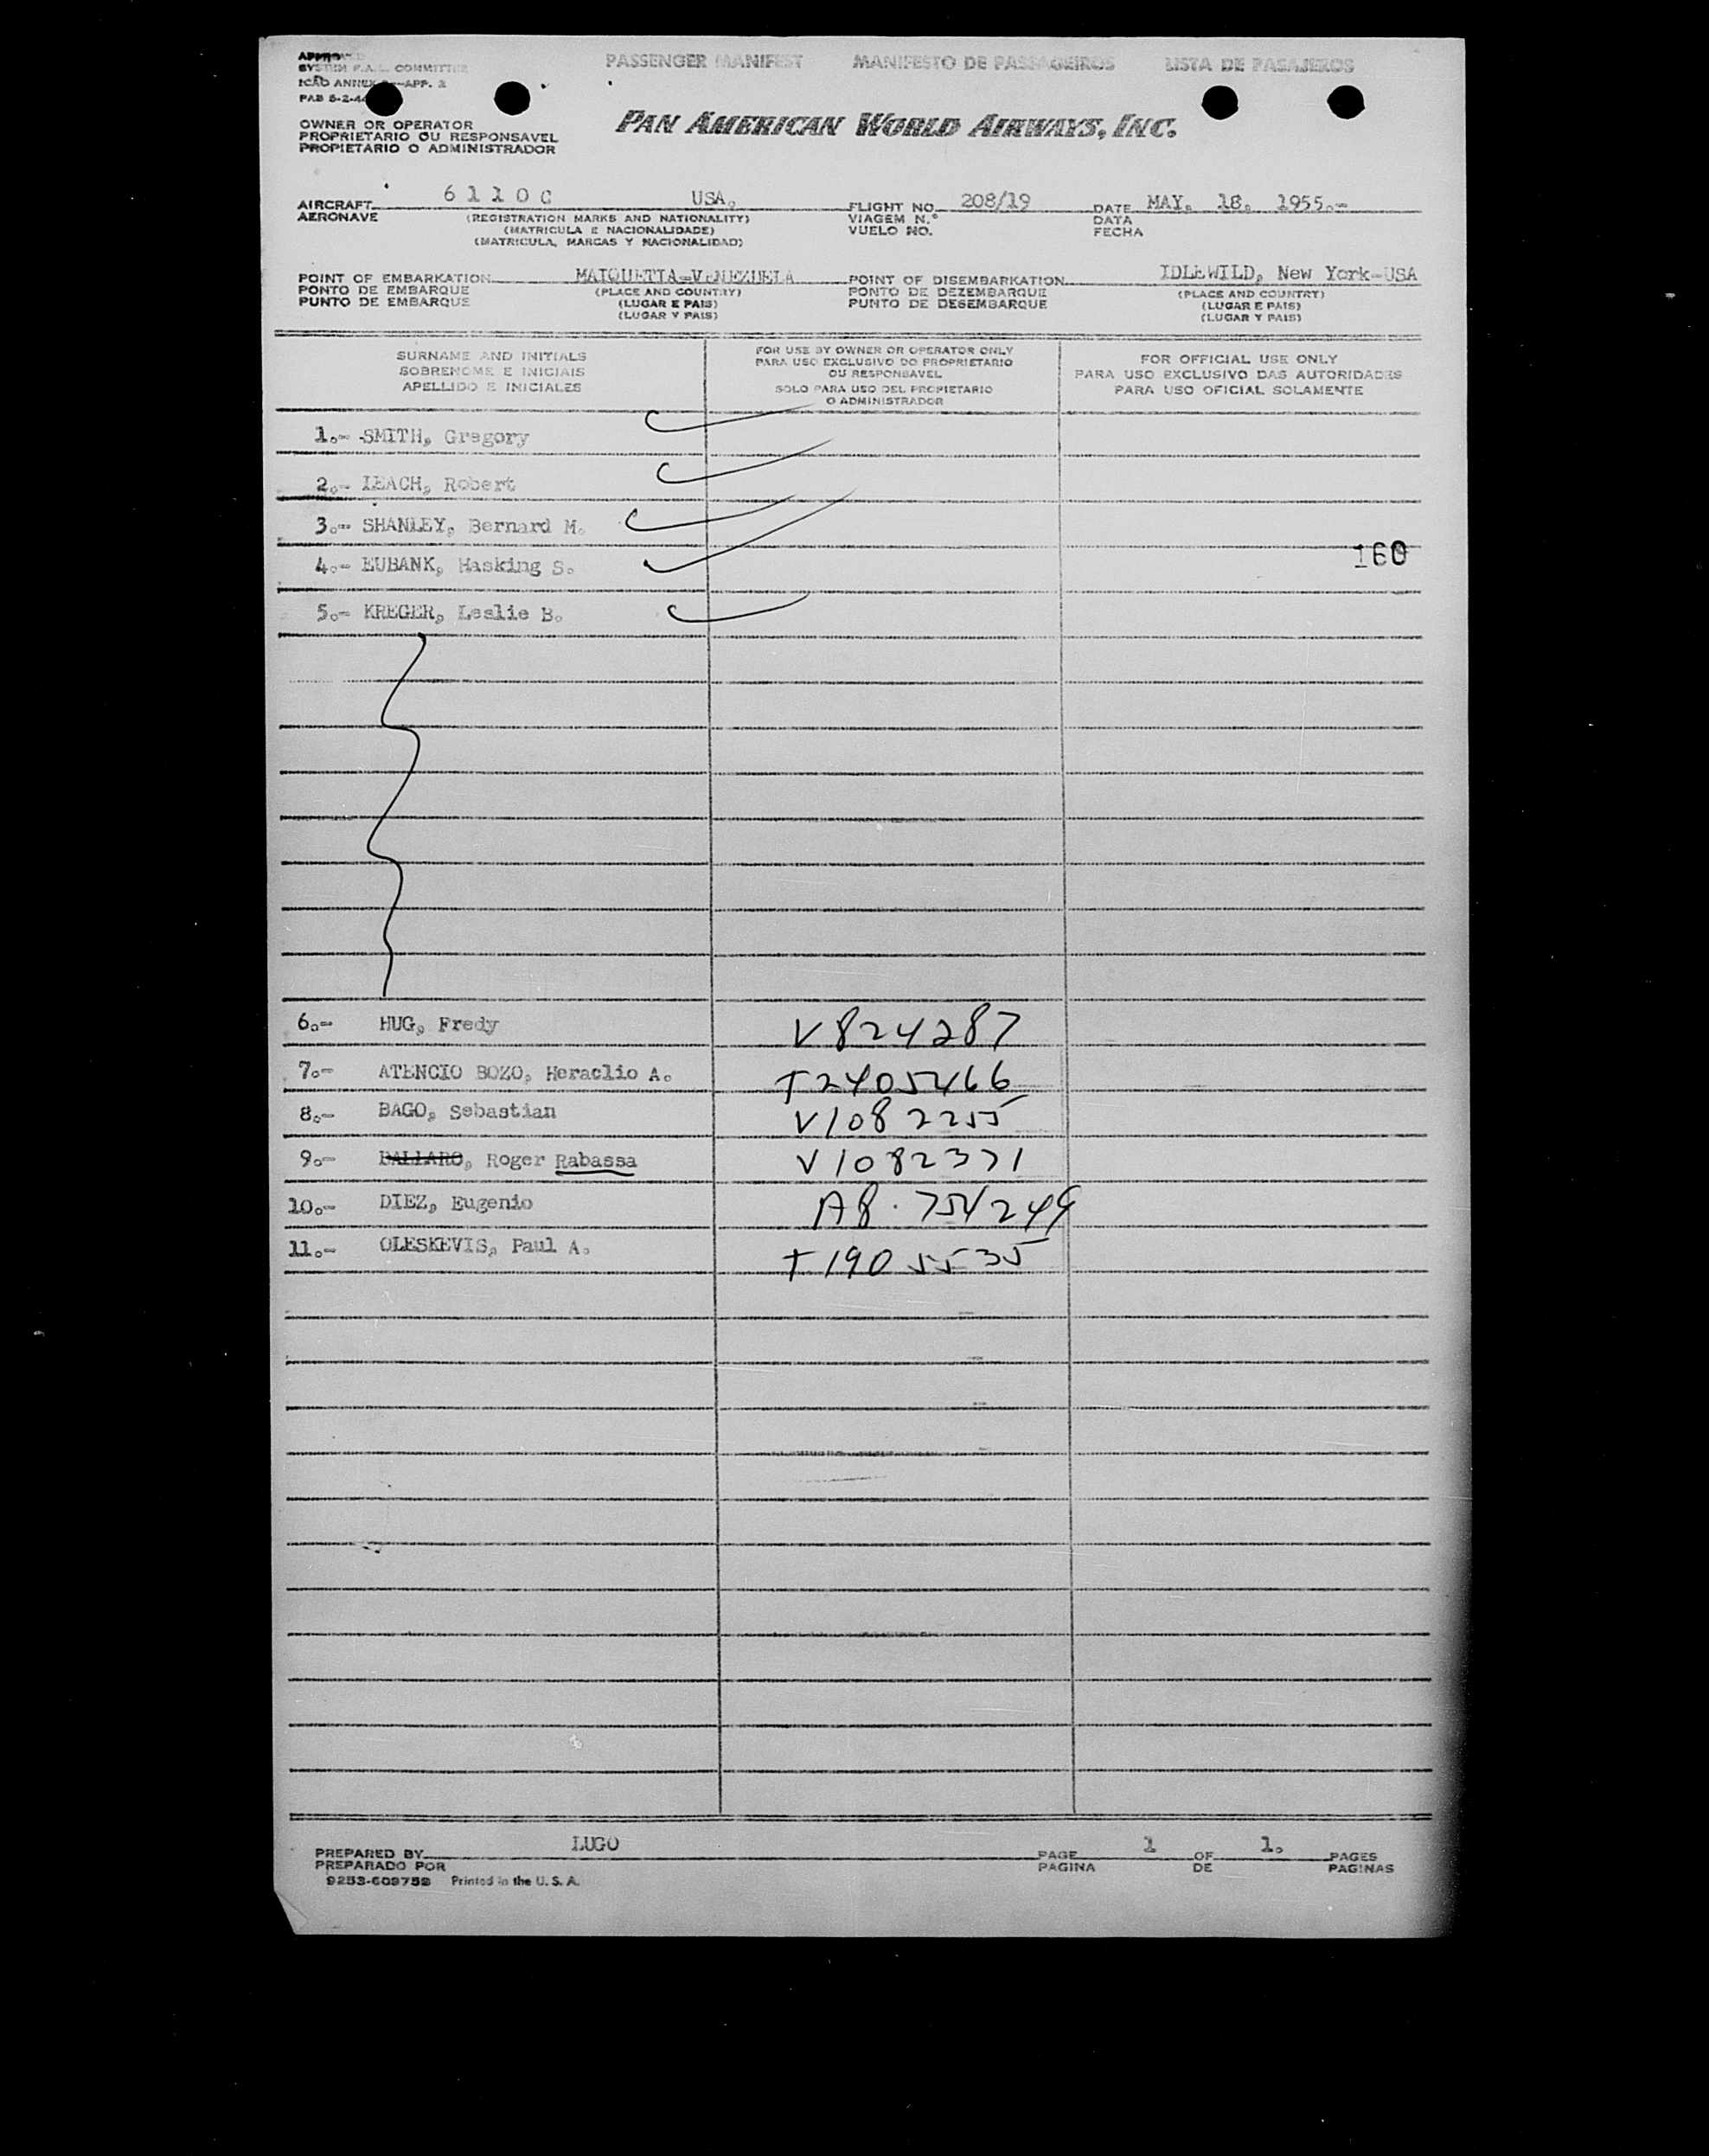 PASSENGER MANIFEST MANIFESTO DE PASSAGEIROS LISTA DE PASAJEROS
APPROVED
SYSTEM F.A.L. COMMITTEE
ICAO ANNEX APP. 2
PAB 5-2-4
OWNER OR OPERATOR
PROPRIETARIO OU RESPONSAVEL
PROPIETARIO O ADMINISTRADOR
PAN AMERICAN WORLD AIRWAYS, INC.
AIRCRAFT 6 1 1 0 C USA. FLIGHT NO. 208/19 DATE MAY. 18. 1955.-
AERONAVE (REGISTRATION MARKS AND NATIONALITY) VIAGEM N.º DATA
(MATRICULA E NACIONALIDADE) VUELO NO. FECHA
(MATRICULA, MARCAS Y NACIONALIDAD)
POINT OF EMBARKATION MAIQUETIA-VENEZUELA POINT OF DISEMBARKATION IDLEWILD, New York-USA
PONTO DE EMBARQUE (PLACE AND COUNTRY) PONTO DE DEZEMBARQUE (PLACE AND COUNTRY)
PUNTO DE EMBARQUE (LUGAR E PAIS) PUNTO DE DESEMBARQUE (LUGAR E PAIS)
(LUGAR Y PAIS) (LUGAR Y PAIS)
SURNAME AND INITIALS
SOBRENOME E INICIAIS
APELLIDO E INICIALES
FOR USE BY OWNER OR OPERATOR ONLY
PARA USO EXCLUSIVO DO PROPRIETARIO
OU RESPONSAVEL
SOLO PARA USO DEL PROPIETARIO
O ADMINISTRADOR
FOR OFFICIAL USE ONLY
PARA USO EXCLUSIVO DAS AUTORIDADES
PARA USO OFICIAL SOLAMENTE
1.- SMITH, Gregory
2.- LEACH, Robert
3.- SHANLEY, Bernard M.
160
4.- EUBANK, Hasking S.
5.- KREGER, Leslie B.
6.- HUG, Fredy V824287
7.- ATENCIO BOZO, Heraclio A. T2405466
8.- BAGO, Sebastian V1082255
9.- DALLARO, Roger Rabassa V1082371
10.- DIEZ, Eugenio A8.754249
11.- OLESKEVIS, Paul A. T1905535
PREPARED BY LUGO PAGE 1 OF 1. PAGES
PREPARADO POR PAGINA DE PAGINAS
9253-609752 Printed in the U. S. A.